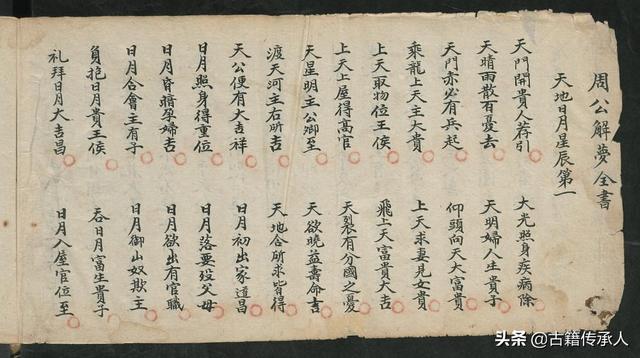 周公解夢全書
天地日月星辰第一
天門開貴人荐引 大光照身疾病除
天晴雨散百憂去 天明婦人生貴子
天門亦必有兵起 仰頭向天大富貴
乘龍上天主大貴 上天求妻見女貴
上天取物位王侯 飛上天富貴大吉
上天上屋得高官 天裂有分國之憂
天星明主公卿至 天欲曉益壽命吉
渡天河主右所吉 天地合所求皆得
天公便有大吉祥 日月初出家道昌
日月照身得重位 日月落要沒父母
日月昏暗孕婦吉 日月欲出有官職
日月合會主有子 日月御山奴欺主
負抱日月貴王侯 吞日月富生貴子
礼拜日月大吉昌 日月入屋官位至
头条 @古籍传承人